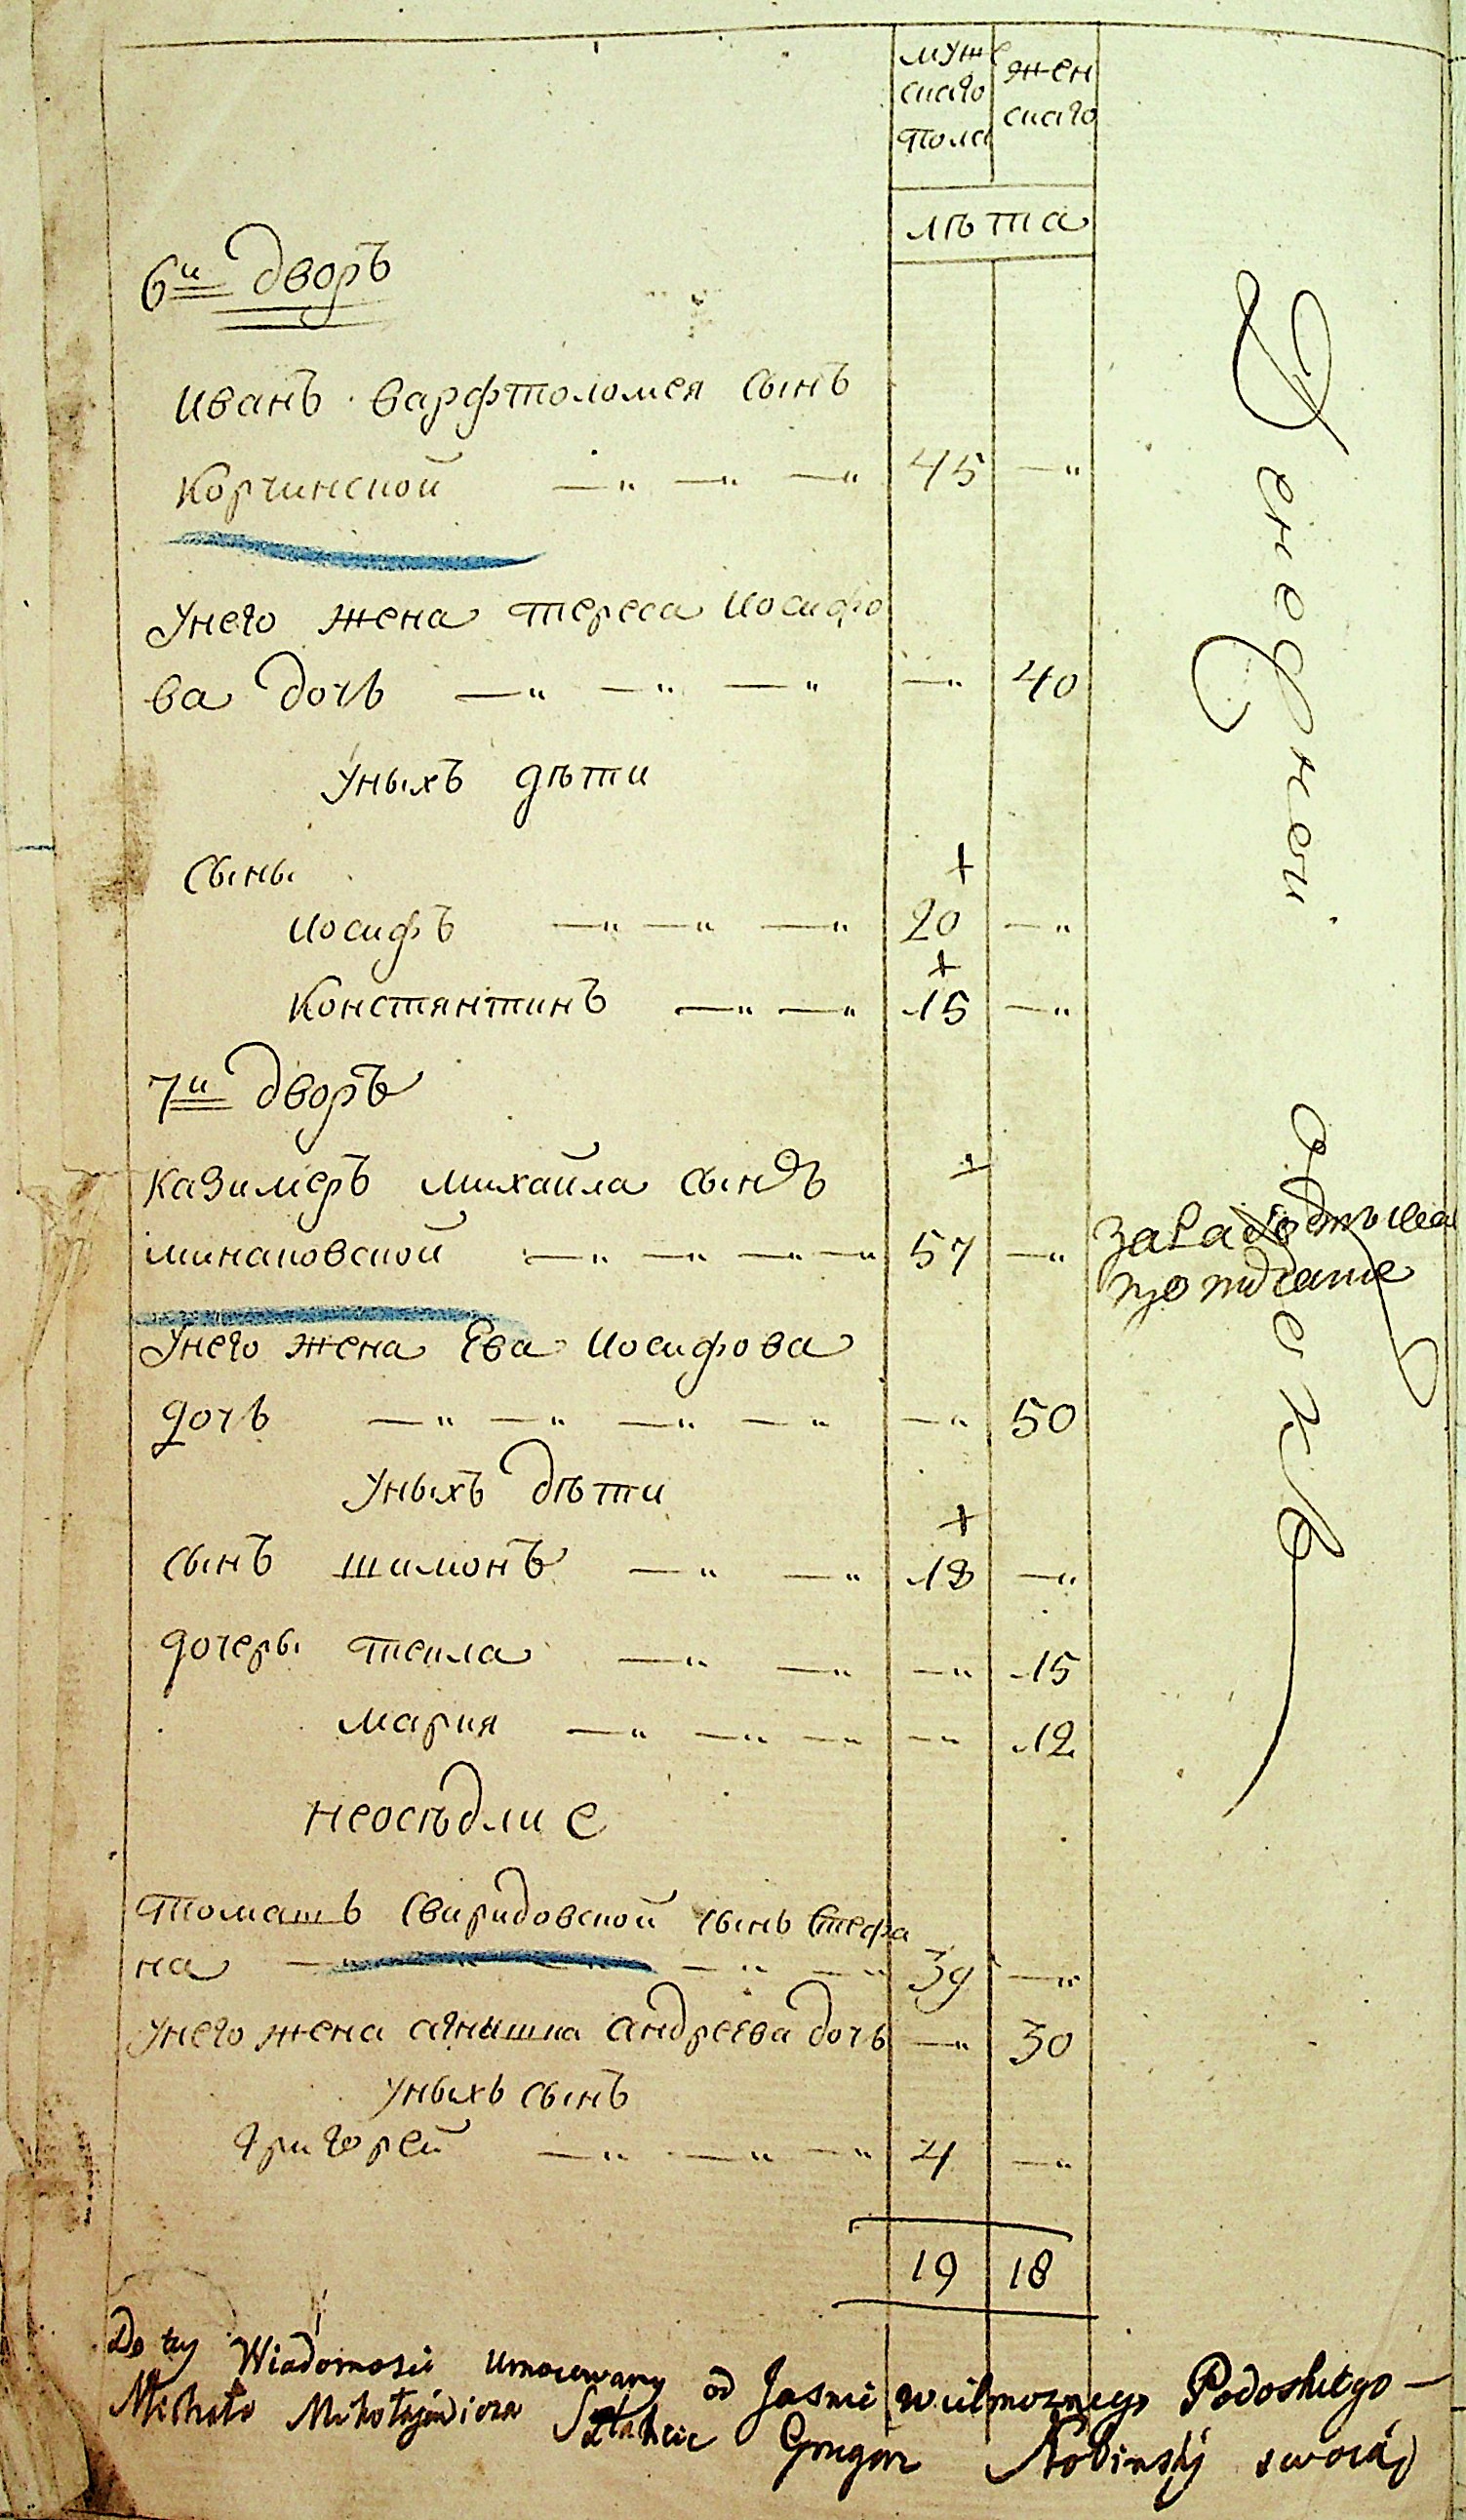 муже
скаго
пола
жен
скаго
лѣта
6и дворъ
Иванъ варфтоломея сынъ
Корчинской 45
Унего жена тереса Иосифо
ва дочь 40
Уныхъ дѣти
Сыны
Иосифъ 20
Констянтинъ 15
7и дворъ
Казимеръ михайла сынъ
минаковской 57
Унего жена Ева Иосифова
дочь 50
Уныхъ дѣти
сынъ шимонъ 18
дочеры текла 15
мария 12
неосѣдлие
томашъ Свиридовской сынъ Стефа
на 39
Унего жена агнышка андреева дочь 30
Уныхъ сынъ
григорей 4
19 18
Do tey Wiadomosci umocowany od Jasnie wielmoznego Podoskiego
Michała Mikołajewicza Szlachcic Grzegorz